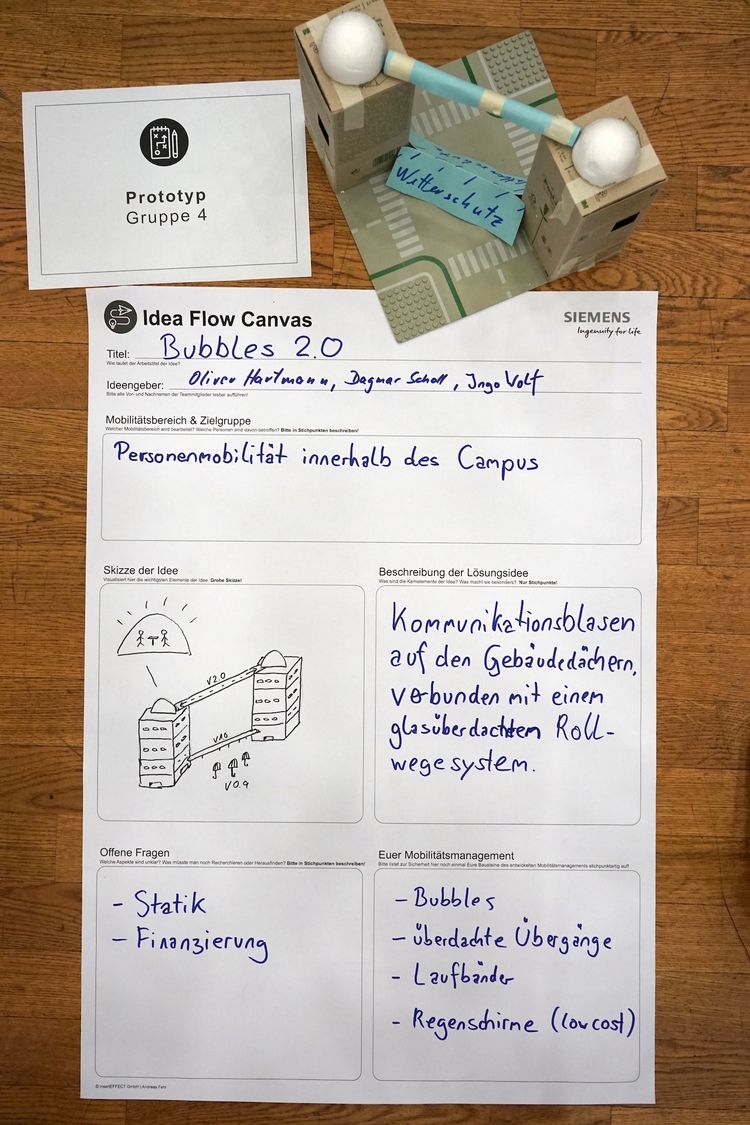 Wetterschutz
Prototyp
Gruppe 4
Idea Flow Canvas
SIEMENS
Ingenuity for life
Titel: Bubbles 2.0
Wie lautet der Arbeitstitel der Idee?
Ideengeber: Oliver Hartmann, Dagmar Scholl, Ingo Wolf
Bitte alle Vor- und Nachnamen der Teammitglieder lesbar aufführen!
Mobilitätsbereich & Zielgruppe
Welcher Mobilitätsbereich wird bearbeitet? Welche Personen sind davon betroffen? Bitte in Stichpunkten beschreiben!
Personenmobilität innerhalb des Campus
Skizze der Idee
Visualisiert hier die wichtigsten Elemente der Idee. Grobe Skizze!
V2.0
V1.0
V0.9
Beschreibung der Lösungsidee
Was sind die Kernelemente der Idee? Was macht sie besonders? Nur Stichpunkte!
Kommunikationsblasen
auf den Gebäudedächern,
verbunden mit einem
glasüberdachtem Roll-
wegesystem.
Offene Fragen
Welche Aspekte sind unklar? Was müsste man noch Recherchieren oder Herausfinden? Bitte in Stichpunkten beschreiben!
- Statik
- Finanzierung
Euer Mobilitätsmanagement
Bitte listet zur Sicherheit hier noch einmal Eure Bausteine des entwickelten Mobilitätsmanagements stichpunktartig auf!
- Bubbles
- überdachte Übergänge
- Laufbänder
- Regenschirme (low cost)
© insertEFFECT GmbH | Andreas Fehr